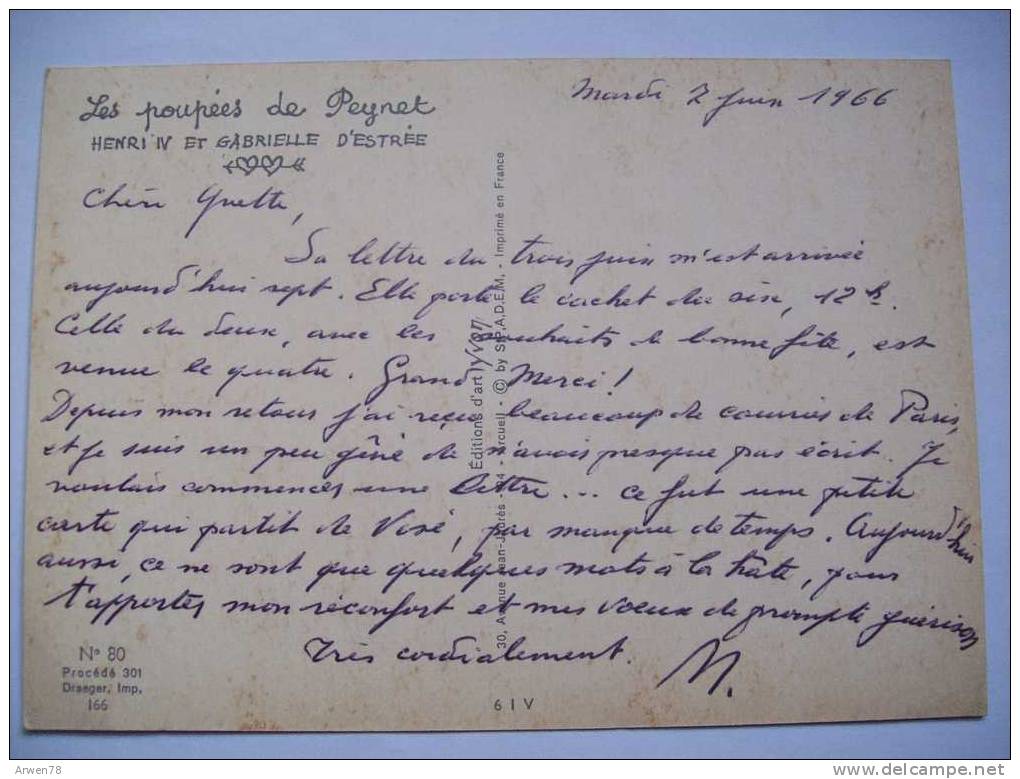 Les poupées de Peynet
HENRI IV ET GABRIELLE D'ESTRÉE
Mardi 7 juin 1966
Chère Yvette,
Ta lettre du trois juin m'est arrivée
aujourd'hui sept. Elle porte le cachet du six, 12h.
Celle du deux, avec les souhaits de bonne fête, est
venue le quatre. Grand Merci !
Depuis mon retour j'ai reçu beaucoup de courrier de Paris,
et je suis un peu gêné de n'avoir presque pas écrit. Je
voulais commencer une lettre ... ce fut une petite
carte qui partit de Visé, par manque de temps. Aujourd'hui
aussi, ce ne sont que quelques mots à la hâte, pour
t'apporter mon réconfort et mes vœux de prompte guérison
Très cordialement.
M.
N° 80
Procédé 301
Draeger, Imp.
166
6 I V
Éditions d'art YVON
30, Avenue Jean-Jaurès - 94 - Arcueil - © by S.P.A.D.E.M. - Imprimé en France
Arwen78
delcampe.net